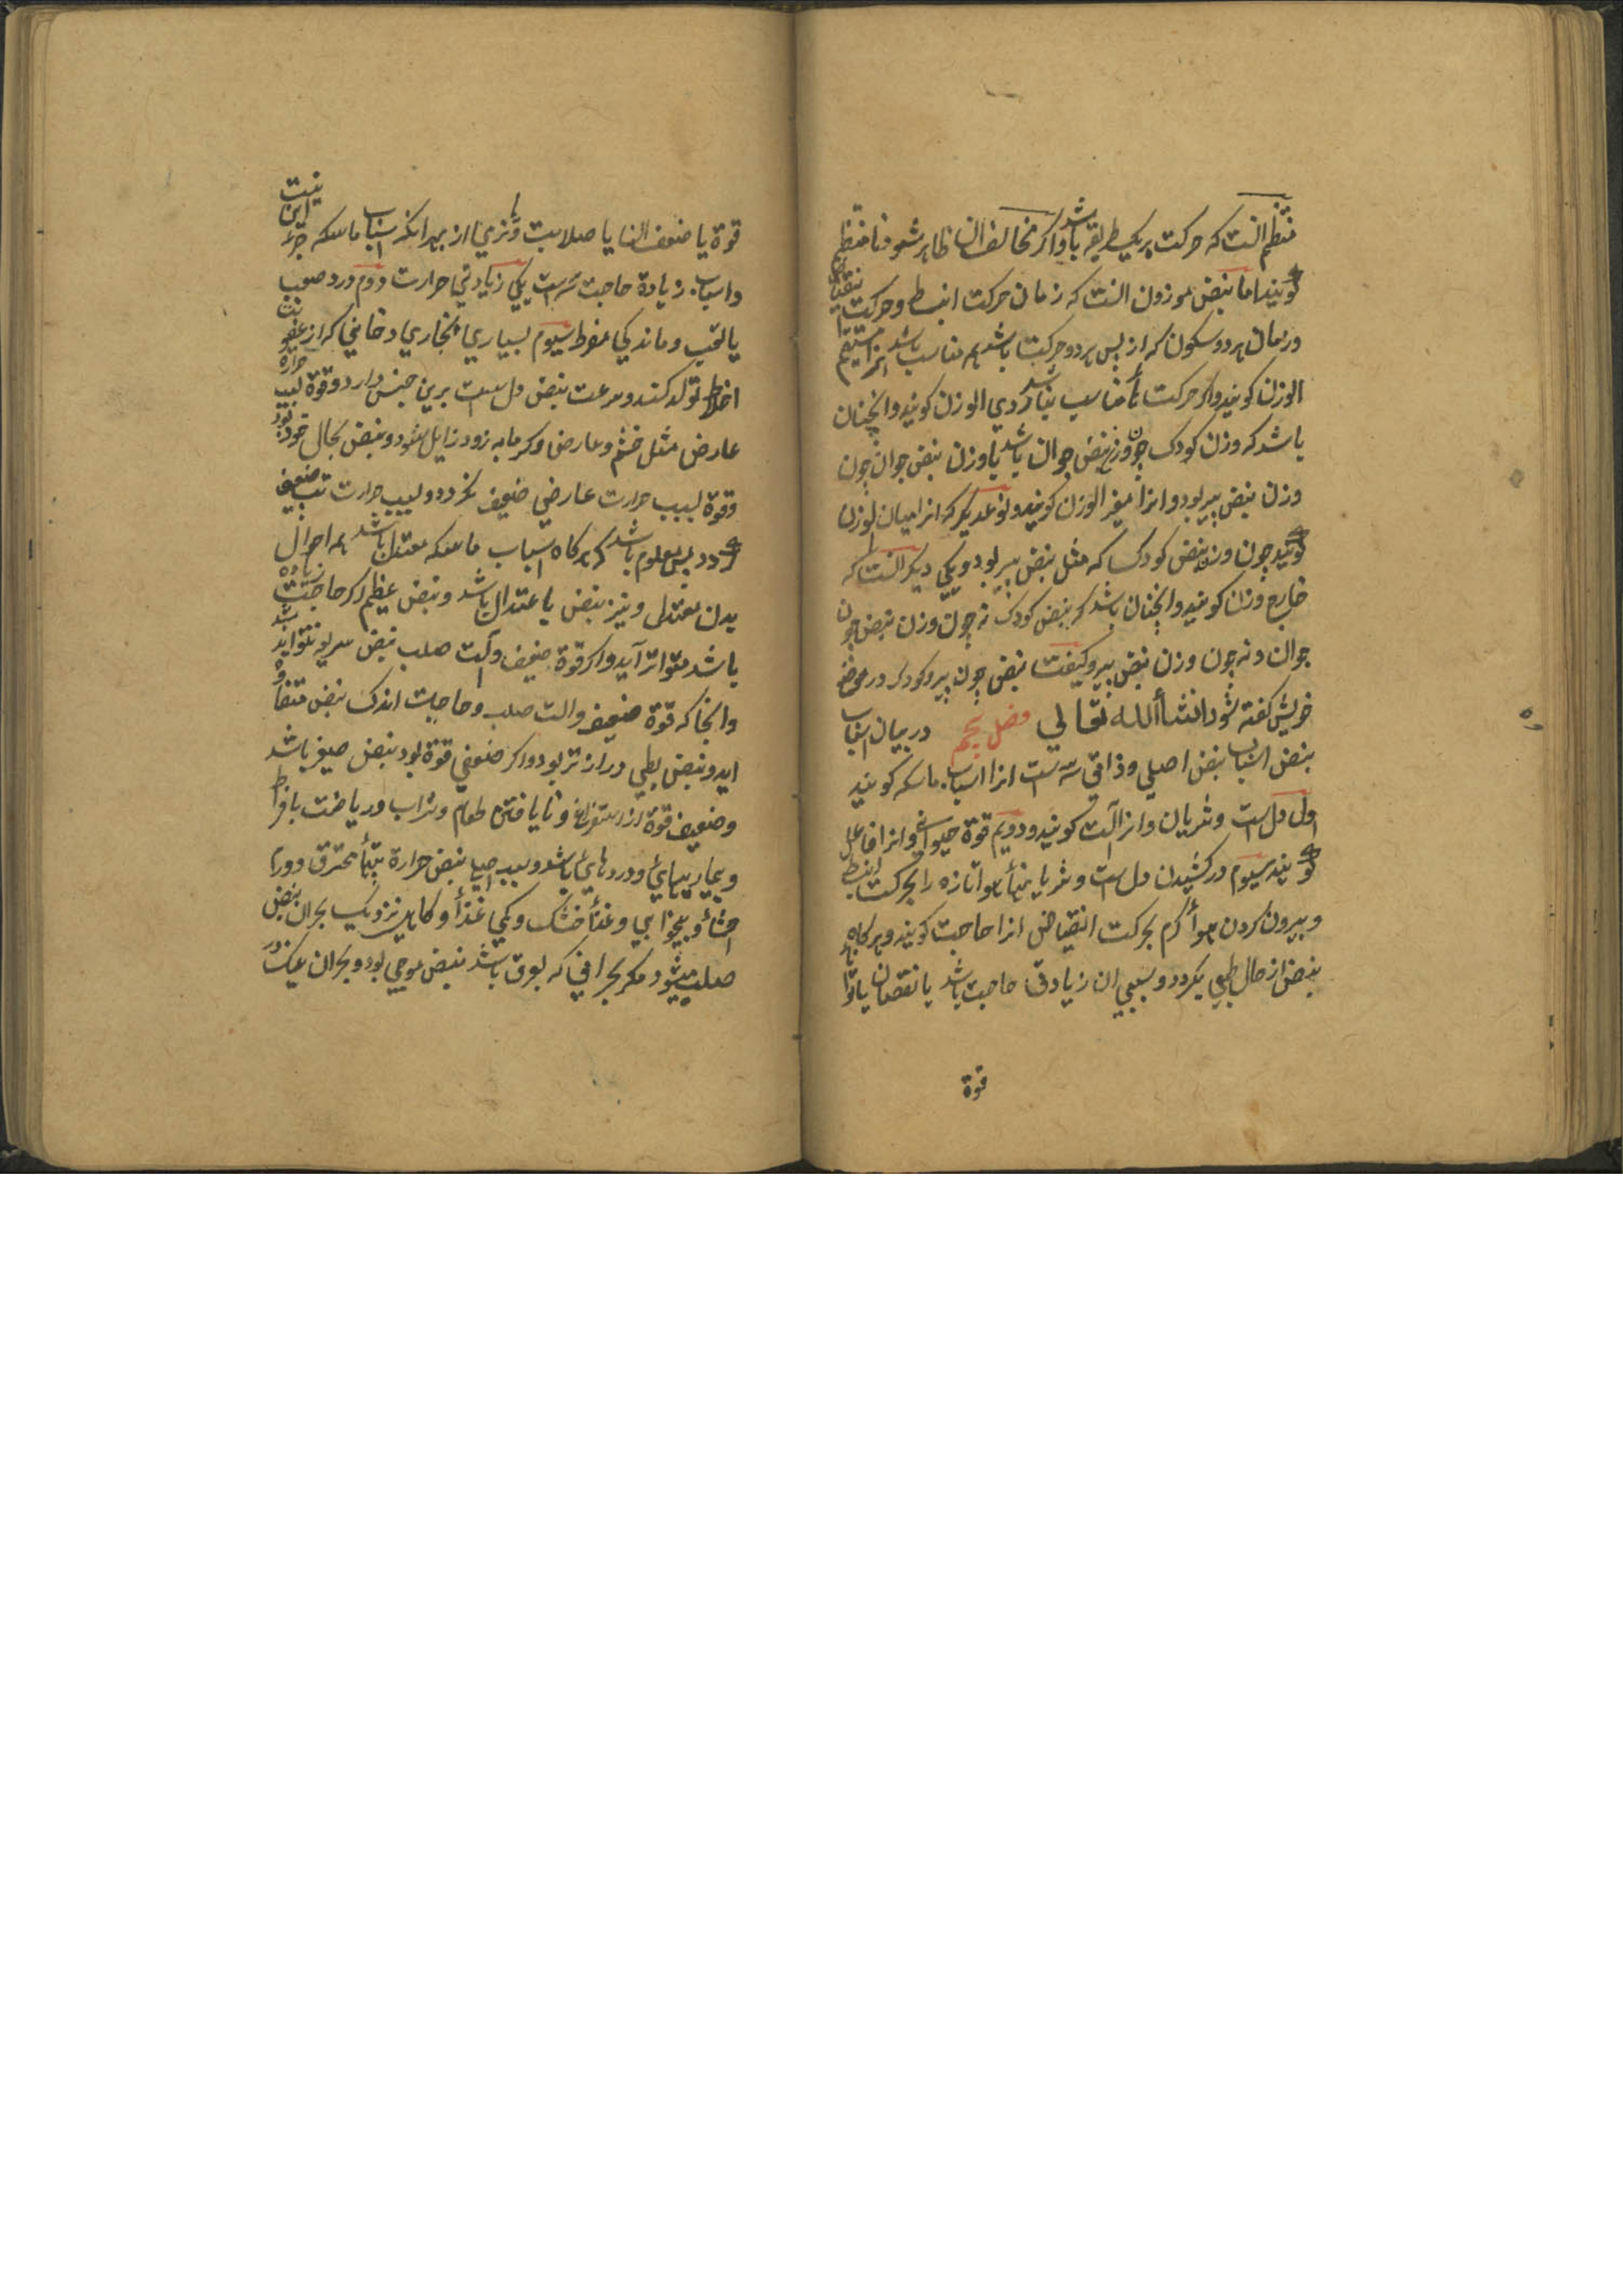 منتظم انست که حرکت بر یک طریقه باشد و اکر مخالف ان ظاهر شود نا منتظم
کویند اما نبض موزون انست که زمان حرکت انبساط و حرکت انقباض
و زمان هر دو سکون که از پس هر دو حرکت باشد هم مناسب باشد انرا مستقیم
الوزن کویند و اکر حرکت نا مناسب باشد ردی الوزن کویند و انچنان
باشد که وزن کودک چون وزن نبض جوان باشد یا وزن نبض جوان چون
وزن نبض پیر بود و انرا متغیر الوزن کویند و نوعدیکر که انرا مباین الوزن
کویند چون وزن نبض کودک که مثل نبض پیر بود و یکی دیکر انست که
خارج وزن کویند و انچنان باشد که نبض کودک نه چون وزن نبض چون
جوان و نه چون وزن نبض پیر و کیفیت نبض جوان پیر و کودک در موضع
خویش کفته شود انشاألله تعالی فصل پنجم در بیان اسباب
نبض اسباب نبض اصلی و ذاتی سه است انرا اسباب ماسکه کویند
اول دل است و شریان و انرا آلت کویند و دویم قوة حیوانی و انرا فاعل
کویند سیوم در کشیدن دل است و شریانها هوا تازه را بحرکت انبساط
و بیرون کردن هوأ کرم بحرکت انقباض انرا حاجت کویند و هرکاه
نبض از حال طبیعی بکردد و سبب ان زیادتی حاجت باشد یا نقصان یا
قوة
قوة یا ضعف ان یا صلابت و نرمی از بهر انکه اسباب ماسکه جز این نیست
و اسباب زیادة حاجت سه است یکی زیادتی حرارت دوم درد صعب
یا تعب و ماندکی مفرط سیوم بسیاری بخاری دخانی که از عفونت
اخلاط تولد کند و سرعت نبض دل است برین جنس دارد و قوة بسبب حرارة
عارض مثل خشم و عارض و کرمابه زود زایل شود و نبض بحال خود بود
و قوة بسبب حرارت عارضی ضعیف نکردد و بسبب حرارت تب ضعیف
کردد پس معلوم باشد که هرکاه اسباب ماسکه معتدل باشد همه احوال
بدن معتدل و نیز نبض با اعتدال باشد و نبض عظیم اکر حاجت زیاده
باشد متواتر آید و اکر قوة ضعیف و آلت صلب نبض سریع نتواند شد
و انجا که قوة ضعیف و الت صلب و حاجت اندک نبض متفاوت
اید و نبض بطی دراز تر بود و اکر ضعیفی قوة بود نبض صغیر باشد
و ضعیف قوة از استفراغ و نا یافتن طعام و شراب و ریاضت بافراط
و بیماریهای و دردهای باشد و سبب نبض حرارة تبهأ محترق و ورم
احشأ و بیخوابی و غذأ خشک و کمی غذأ و کاهی نزدیک بحران نبض
صلب میشود مکر بحرانی که بعرق باشد نبض موجی بود و بحران